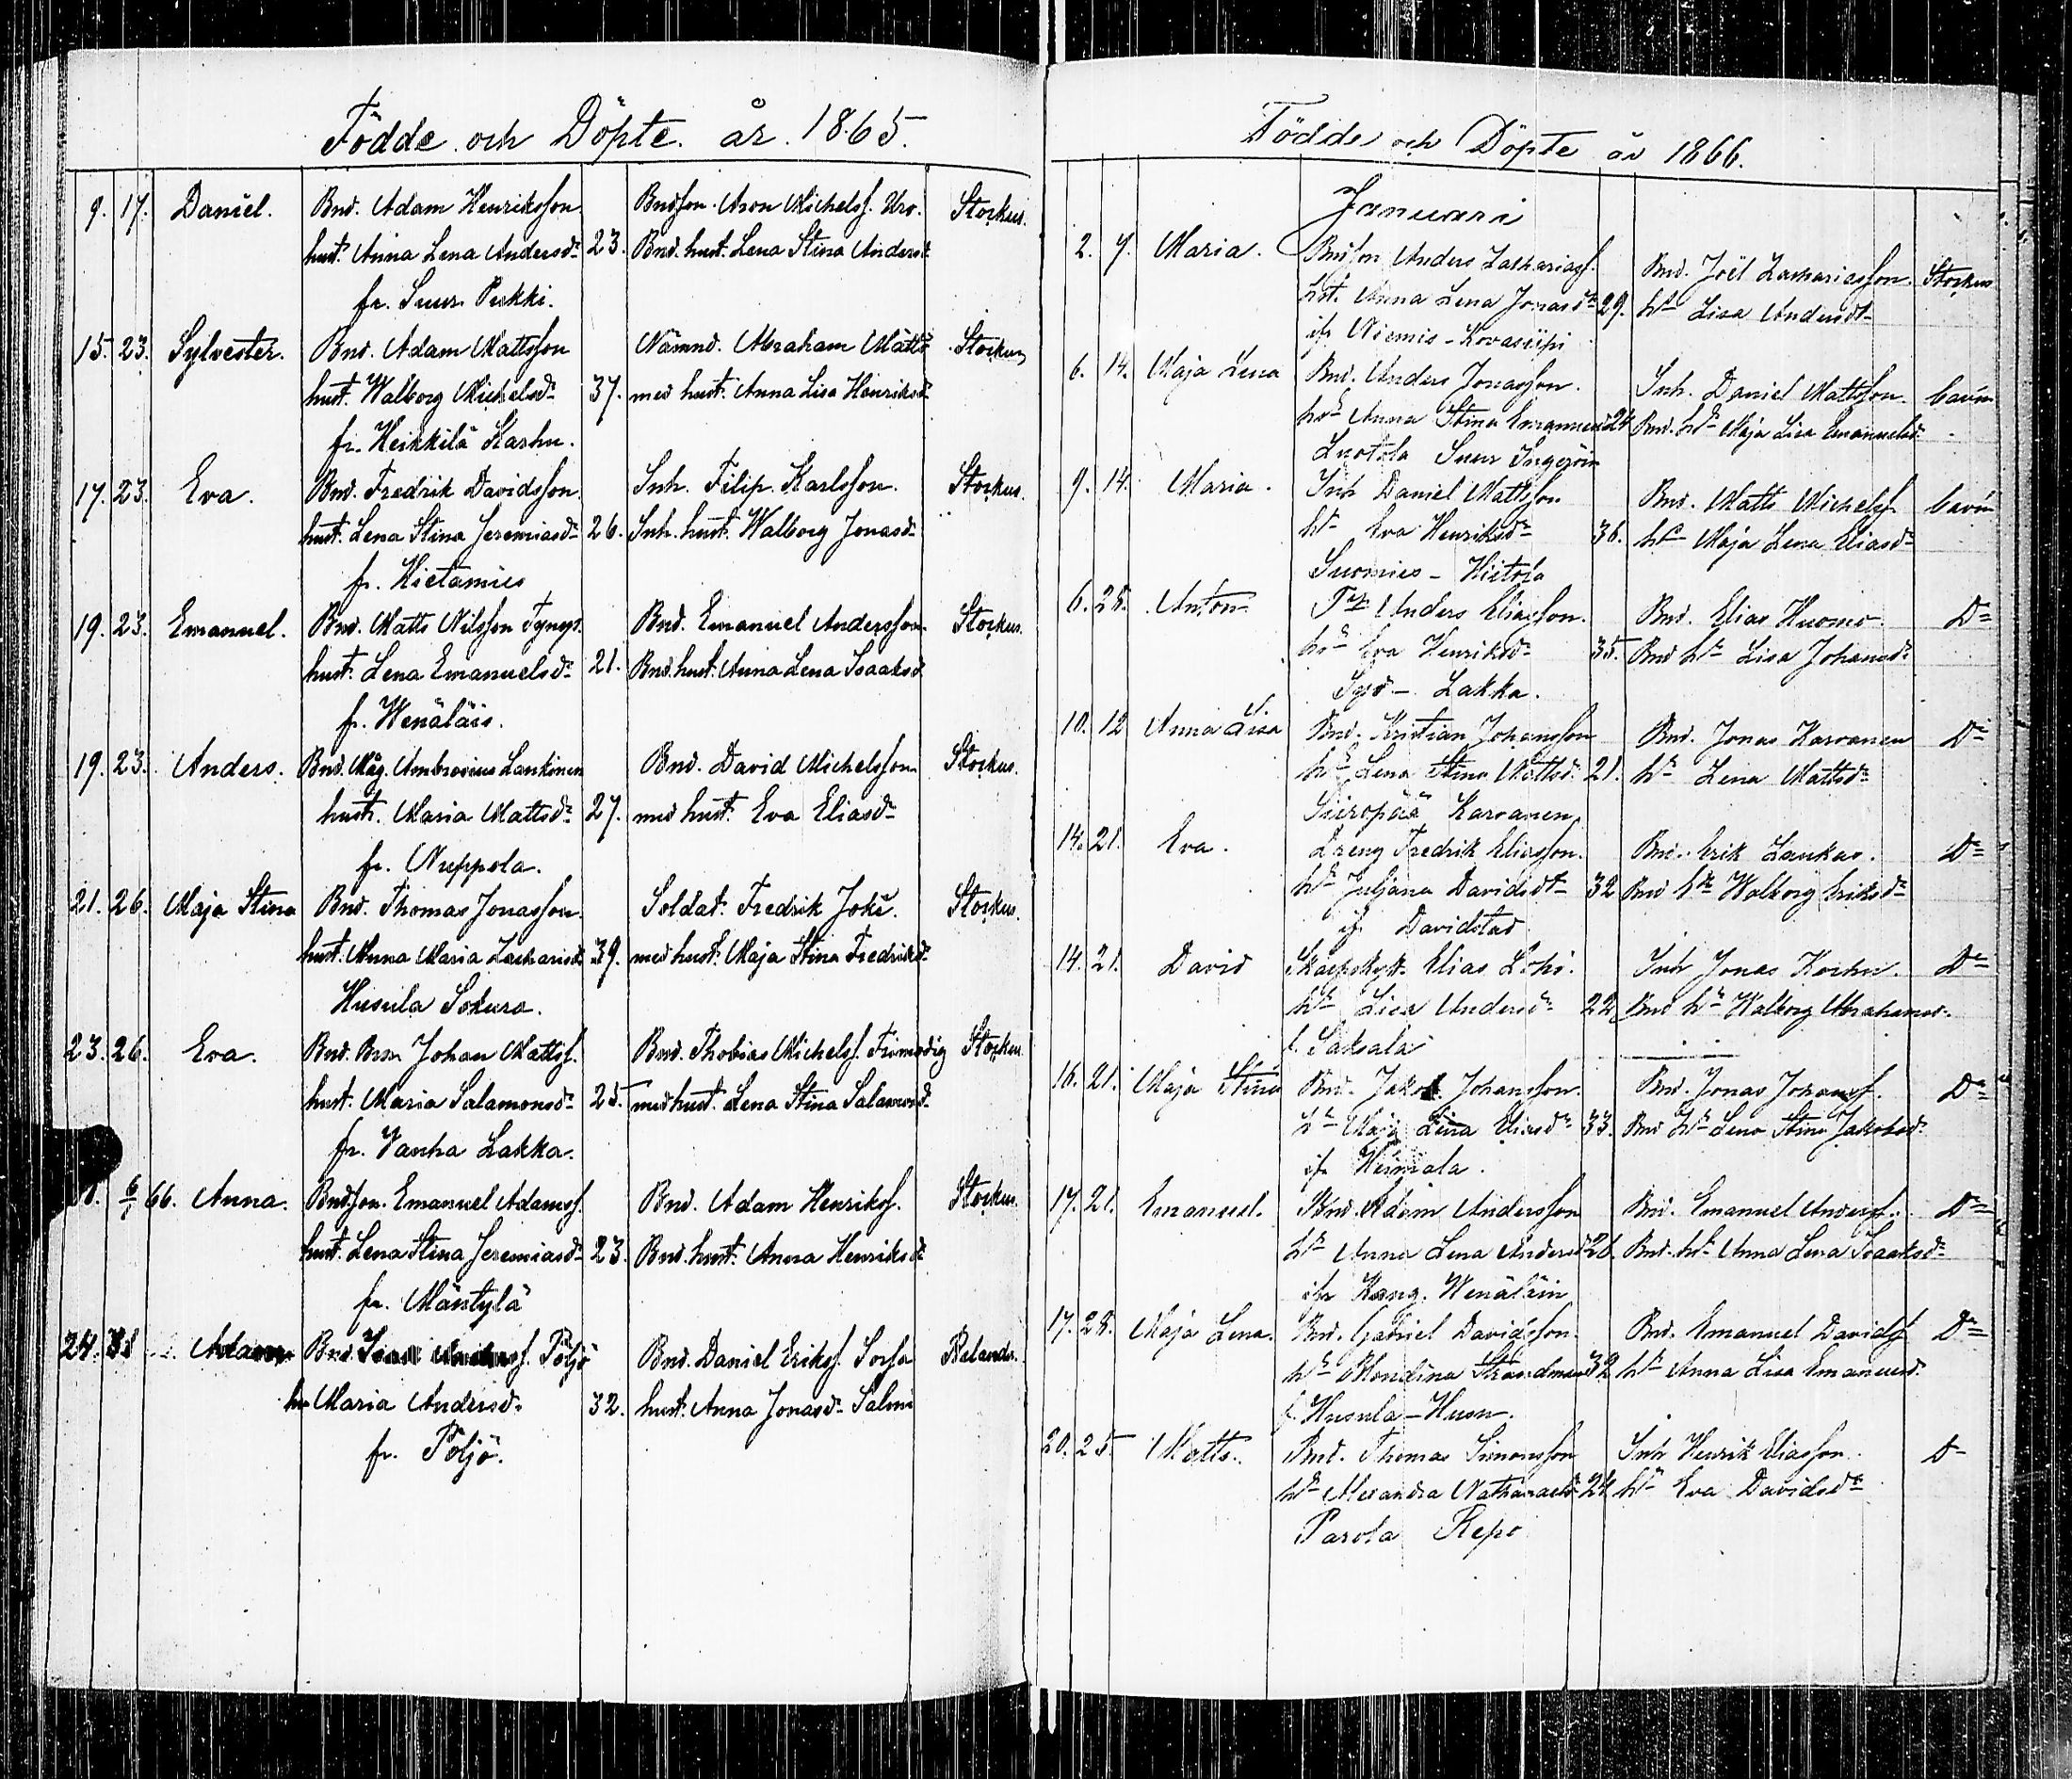 Födde och Döpte år 1865.
9. 17. Daniel. Bnd. Adam Henriksson Bndson Aron Michelss. Uro. Storkus.
hust. Anna Lena Andersd:r 23. Bnd. hust. Lena Stina Andersd:r
fr. Suur Pukki.
15. 23. Sylvester. Bnd. Adam Mattsson Nämnd. Abraham Matts Storkus
hust. Walborg Michelsd:r 37. med hust. Anna Lisa Henriksd:r
fr. Heikkilä Karhu.
17. 23. Eva. Bnd. Fredrik Davidsson Inh. Filip Karlsson. Storkus.
hust. Lena Stina Jeremiasd:r 26. Inh. hust. Walborg Jonasd:r
fr. Hietamies
19. 23. Emanuel. Bnd. Matts Nilsson Tynys. Bnd. Emanuel Andersson Storkus.
hust. Lena Emanuelsd:r 21. Bnd. hust. Anna Lena Isaaksd
fr. Wenäläis.
19. 23. Anders. Bnd. Måg. Ambrosius Lankinen Bnd. David Michelsson Storkus.
hust. Maria Mattsd:r 27. med hust. Eva Eliasd:r
fr. Nuppola.
21. 26. Maja Stina Bnd. Thomas Jonasson. Soldat. Fredrik Joki. Storkus.
hust. Anna Maria Zachariasd. 39. med hust. Maja Stina Fredriksd:r
Husula Sokura.
23. 26. Eva. Bnd. Bror Johan Mattss. Bnd. Thobias Michelss. Frimodig Storkus.
hust. Maria Salamonsd:r 25 med hust. Lena Stina Salamonsd:r
fr. Vanha Lakka.
6/1 66. Anna. Bndson. Emanuel Adamss. Bnd. Adam Henrikss. Storkus.
hust. Lena Stina Jeremiasd:r 23. Bnd. hust. Anna Henriksd:r
fr. Mäntylä
24. 31 Adam Bnd. Poljo Bnd. Daniel Erikss. Sorsa Relander.
hu Maria Andersd:r 32. hust. Anna Jonasd:r Salmi
fr. Poljo.
Födde och Döpte år 1866.
Januari
2. 7. Maria. Bndson Anders Zachariass. Bnd. Joël Zachariasson. Storkus
hst. Anna Lena Jonasd:r 29. h:u Lisa Andersd:r
ifr Niemis - Kovasiipi
6. 14. Maja Lena Bnd. Anders Jonasson. Inh. Daniel Mattsson.
h:u Anna Stina Emanuelsd 24 Bnd. h:u Maja Lisa Emanuelsd.
Luotola Suur Ingerois
9. 14. Maria. Inh Daniel Mattsson Bnd. Matts Michelss
h:u Eva Henriksd:r 36. h:u Maja Lena Eliasd:r
Suomies - Hietola
6. 28. Anton Anders Eliasson. Bnd. Elias Huomo D:o
h:u Eva Henriksd:r 35. Bnd h:u Lisa Johansd:r
Lakka.
10. 12 Anna Lisa Bnd. Kristian Johansson Bnd. Jonas Karvanen D:o
h:u Lena Stina Mattsd. 21. h:u Lena Mattsd:r
Siiropää Karvanen
14. 21. Eva. Dreng Fredrik Eliasson. Bnd. Erik Laukas. D:o
h:u Juljana Davidsd:r 32 Bnd h:u Walborg Eriksd:r
if. Davidstad
14. 21. David Elias Lohi. Inh Jonas Korhu. D:o
h:u Lisa Andersd:r 22 Bnd h:u Walborg Abrahamsd.
f. Saksala
16. 21. Maja Stina Bnd. Jakob Johansson. Bnd. Jonas Johanss. D:o
h:u Maja Lena Eliasd:r 33. Bnd h:u Lena Stina Jakobsd.
ifr Heimala.
17. 21. Emanuel. Bnd. Adam Andersson Bnd. Emanuel Anderss. D:o
h:u Anna Lena Andersd 26. Bnd. h:u Anna Lena Isaaksd:r
ifr Kang. Wenäläin
17. 28. Maja Lena. Bnd. Gabriel Davidsson. Bnd. Emanuel Davidss D:o
h:u Blondina Strandman 32 h:u Anna Lisa Emanuelsd.
f. Husula - Husu.
20. 25 Matts. Bnd. Thomas Simonsson Inh Henrik Eliasson. D:o
h:u Alexandra Nathanaelsd 24 h:u Eva Davidsd:r
Parola Repo